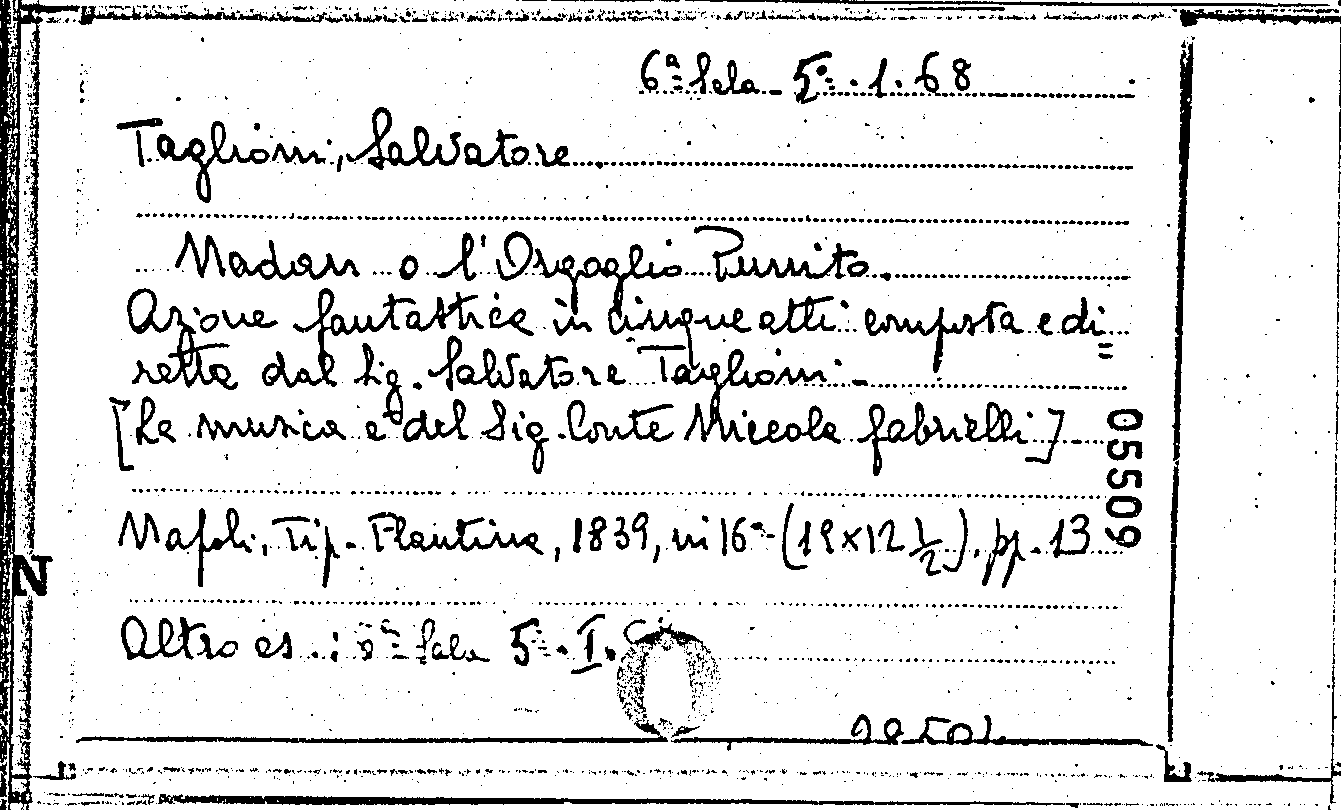 6ª Sala - 5ª. 1. 68
Taglioni, Salvatore.
Nadan o l'Orgoglio Punito.
Azione fantastica in cinque atti composta e di=
retta dal Sig. Salvatore Taglioni.
[La musica è del Sig. Conte Niccola Gabrielli]
05509
Napoli, Tip. Flautina, 1839, in 16º (19x12 1/2). pp. 13
N
Altro es.: Sala 5ª. I.